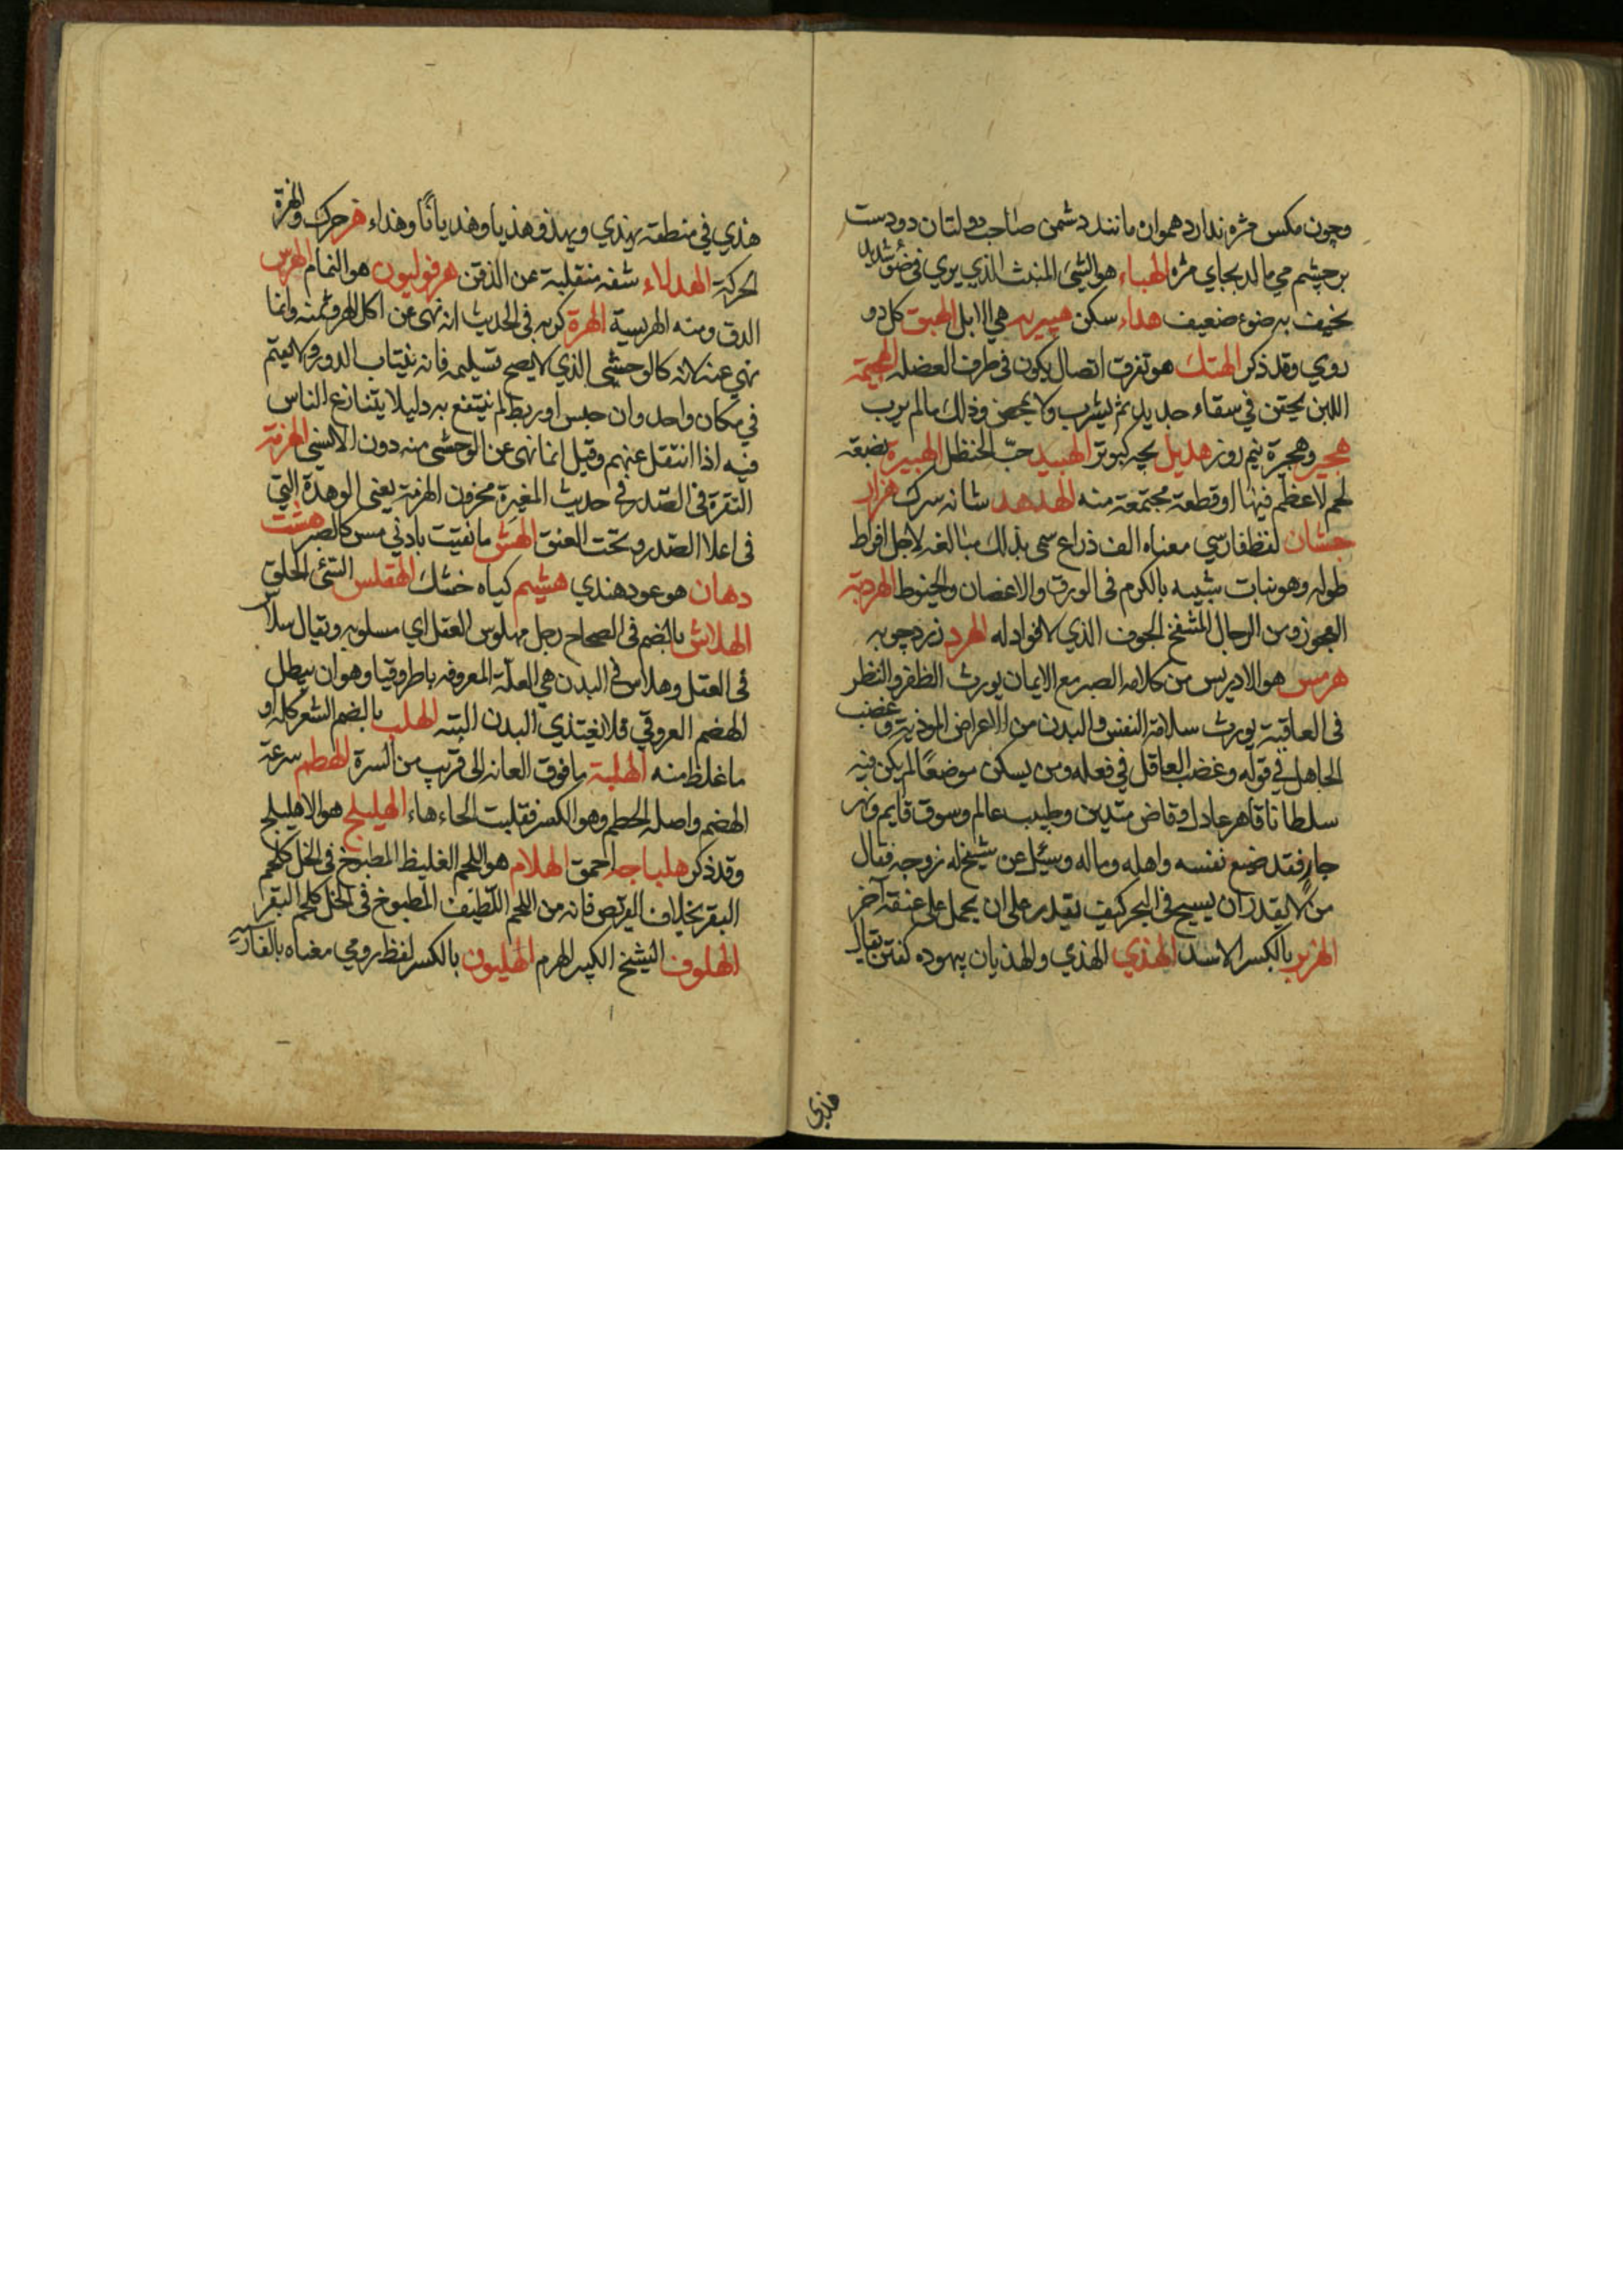 وچون مکس مژه ندارد هموان مانند دشمن صاحب دولتان دو دست
بر چشم می مالد بجای مژه الهباء هو الشیء المنبث الذي یری في ضوء شدید
نحیف به ضوء ضعیف هداء سکن هي الابل الهبق کل دو
روي وقد ذکر الهتك هو تفرق اتصال یکون في طرف العضله الهجیمة
اللبن یحقن في سقاء جدید ثم یشرب ولا یمخض وذلك مالم یرب
هجیر وهجرة نیم روز هدیل بچه کبوتر الهبید حبّ الحنظل الهبیرة بضعة
لحم لا عظم فیها او قطعة مجتمعة منه الهدهد شانه سرك هزار
جشان لفظ فارسي معناه الف ذراع سمی بذلك مبالغه لاجل افراط
طوله وهو نبات شبیه بالکرم في الورق والاغصان والخیوط الهردبة
العجوز ومن الرجال المنتفخ الجوف الذي لا فواد له الهرد زرد چوبه
هرمس هو الادریس من کلامه الصبر مع الایمان یورث الظفر والنظر
في العاقبة یورث سلامة النفس والبدن من الاعراض الموذیة وغضب
الجاهل في قوله وغضب العاقل في فعله ومن یسکن موضعًا لم یکن فیه
سلطانا قاهر عادل وقاض متدین وطبیب عالم وسوق قایم ونهر
جار فقد ضیع نفسه واهله وماله وسئل عن شیخ له زوجه فقال
من لا یقدر ان یسبح في البحر کیف یقدر علی ان یحمل علی عنقه آخر
الهزبر بالکسر الاسد الهذي الهذي والهذیان بیهوده کفتن یقال
هذي
هذي في منطقه یهذي ویهذو هذیا وهذیانًا وهذاء هز حرك والهزة
الحرکة الهدلاء شفه منقلبة عن الذقن هرفولیون هو النمام الهرس
الدق ومنه الهریسة الهرة کربه في الحدیث انه نهی عن اکل الهر وثمنه وانما
نهي عنه لانه کالوحشي الذي لا یصح تسلیمه فانه ینتاب الدور ولا یقیم
في مکان واحد وان حبس او ربط لم ینتفع به دلیلا یتنازع الناس
فیه اذا انتقل عنهم وقیل انما نهی عن الوحشي منه دون الانسي الهزمة
النقرة في الصدر في حدیث المغیرة محزون الهزمة یعني الوهدة التي
في اعلا الصدر وتحت العنق الهش ما تفتت بادني مس کالصبر هشت
دهان هو عود هندي هشیم کیاه خشك الهقلس السئ الخلق
الهلاش بالضم في الصحاح رجل مهلوس العقل اي مسلوبه ویقال سلاس
في العقل وهلاس في البدن هي العلّة المعروفه باطروقیا وهو ان یبطل
الهضم العروقي فلا یغتذي البدن البته الهلب بالضم الشعر کله او
ما غلظ منه الهلبة مافوق العانه الی قریب من السرة الهطم سرعة
الهضم واصله الحطم وهو الکسر فقلبت الحاء هاء الهلیلج هو الاهلیلج
وقد ذکر هلباجه احمق الهلام هو اللحم الغلیظ المطبوخ في الخل کلحم
البقر بخلاف القریص فانه من اللحم اللّطیف المطبوخ في الخل کلحم البقر
الهلوف الشیخ الکبیر الهرم الهلیون بالکسر لفظ رومي معناه بالفارسیه